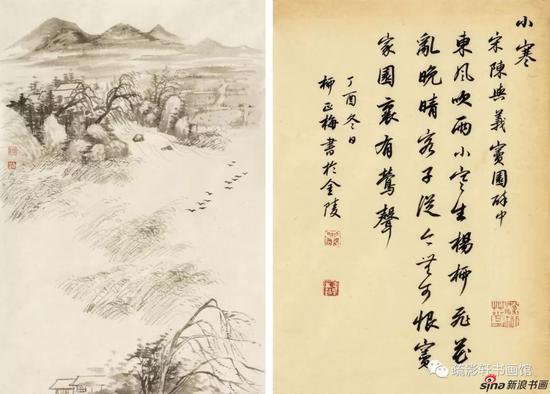 小寒
宋陳與義竇園醉中
東風吹雨小寒生楊柳飛花
亂晚晴客子從今無可恨竇
家園裏有鶯聲
丁酉冬日
柳正梅書於金陵
疏影轩书画馆
sina新浪书画